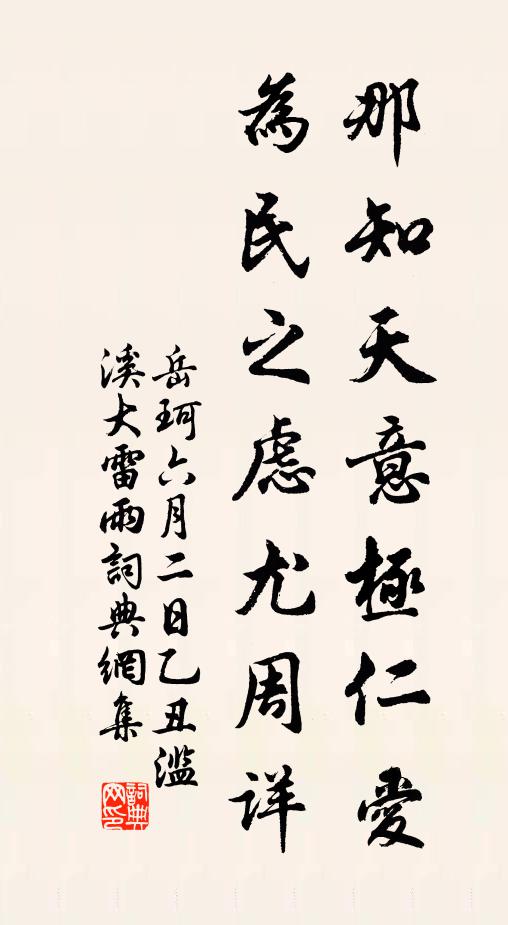 那知天意極仁愛
為民之慮尤周详
岳珂六月二日乙丑濫
溪大雷雨詞典網集
詞典网印